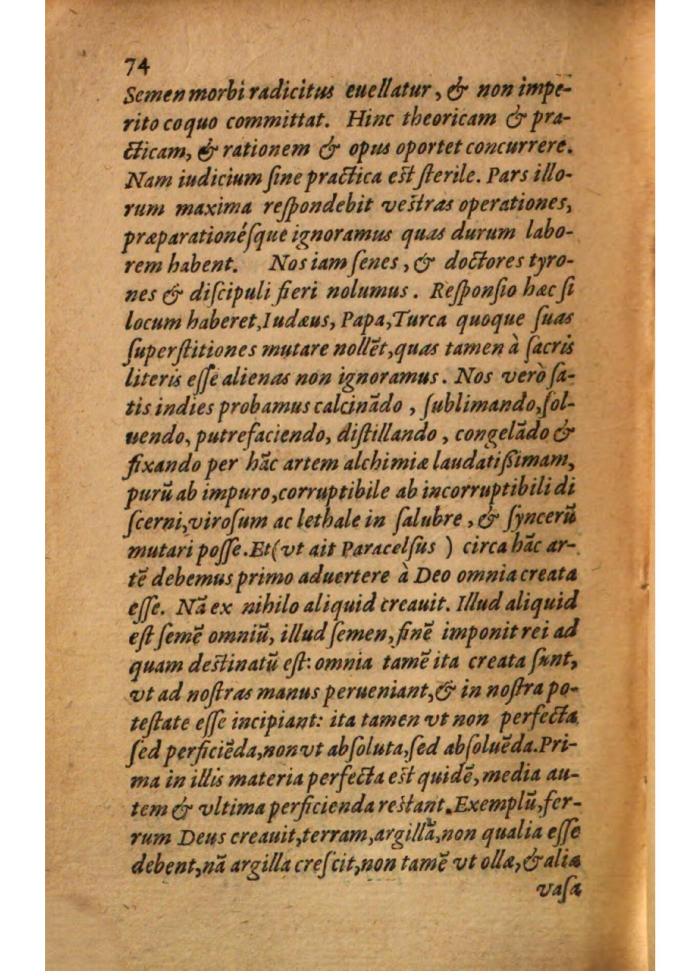 74
Semen morbi radicitus euellatur, & non impe-
rito coquo committat. Hinc theoricam & pra-
cticam, & rationem & opus oportet concurrere.
Nam iudicium ſine practica eſt ſterile. Pars illo-
rum maxima reſpondebit veſtras operationes,
præparationéſque ignoramus quas durum labo-
rem habent. Nos iam ſenes, & doctores tyro-
nes & diſcipuli fieri nolumus. Reſponſio hæc ſi
locum haberet, Iudæus, Papa, Turca quoque ſuas
ſuperſtitiones mutare nollẽt, quas tamen à ſacris
literis eſſe alienas non ignoramus. Nos verò ſa-
tis indies probamus calcinãdo, ſublimando, ſol-
uendo, putrefaciendo, diſtillando, congelãdo &
fixando per hãc artem alchimiæ laudatiſsimam,
purũ ab impuro, corruptibile ab incorruptibili di
ſcerni, viroſum ac lethale in ſalubre, & ſyncerũ
mutari poſſe. Et (vt ait Paracelſus) circa hãc ar-
tẽ debemus primo aduertere à Deo omnia creata
eſſe. Nã ex nihilo aliquid creauit. Illud aliquid
eſt ſemẽ omniũ, illud ſemen, finẽ imponit rei ad
quam deſtinatũ eſt: omnia tamẽ ita creata ſunt,
vt ad noſtras manus perueniant, & in noſtra po-
teſtate eſſe incipiant: ita tamen vt non perfecta
ſed perficiẽda, non vt abſoluta, ſed abſoluẽda. Pri-
ma in illis materia perfecta eſt quidẽ, media au-
tem & vltima perficienda reſtant. Exemplũ, fer-
rum Deus creauit, terram, argillã, non qualia eſſe
debent, nã argilla creſcit, non tamẽ vt ollæ, & alia
vaſa